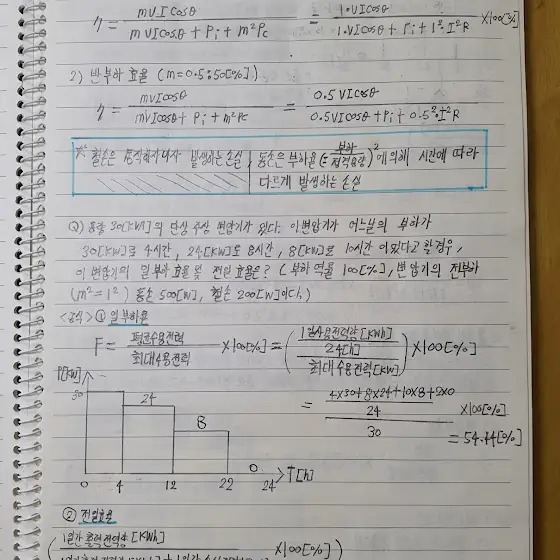 η = mVICosθ / mVICosθ + Pi + m²Pc = 1·VICosθ / 1·VICosθ + Pi + 1²·I²R ×100[%]
2) 반부하 효율 (m=0.5:50[%])
η = mVICosθ / mVICosθ + Pi + m²Pc = 0.5VICosθ / 0.5VICosθ + Pi + 0.5²·I²R
철손은 발생하는 손실, 동손은 부하율(= 부하 / 정격용량)²에 의해 시간에 따라
다르게 발생하는 손실
Q) 용량 30[kW]의 단상 주상 변압기가 있다. 이 변압기가 어느날의 부하가
30[kW]로 4시간, 24[kW]로 8시간, 8[kW]로 10시간 이었다고 할경우,
이 변압기의 일부하율 및 전일 효율은? (부하 역률 100[%], 변압기의 전부하
(m²=1²) 동손 500[W], 철손 200[W]이다.)
<공식> ① 일부하율
F = 평균수용전력 / 최대수용전력 ×100[%] = (1일사용전력량[KWh] / 24[h] / 최대수용전력[KW]) ×100[%]
P[KW]
30
24
8
0
0 4 12 22 24 T[h]
= 4×30+8×24+10×8+2×0 / 24 / 30 ×100[%]
= 54.44[%]
② 전일효율
(1일간 출력전력량[KWh] ×100[%])